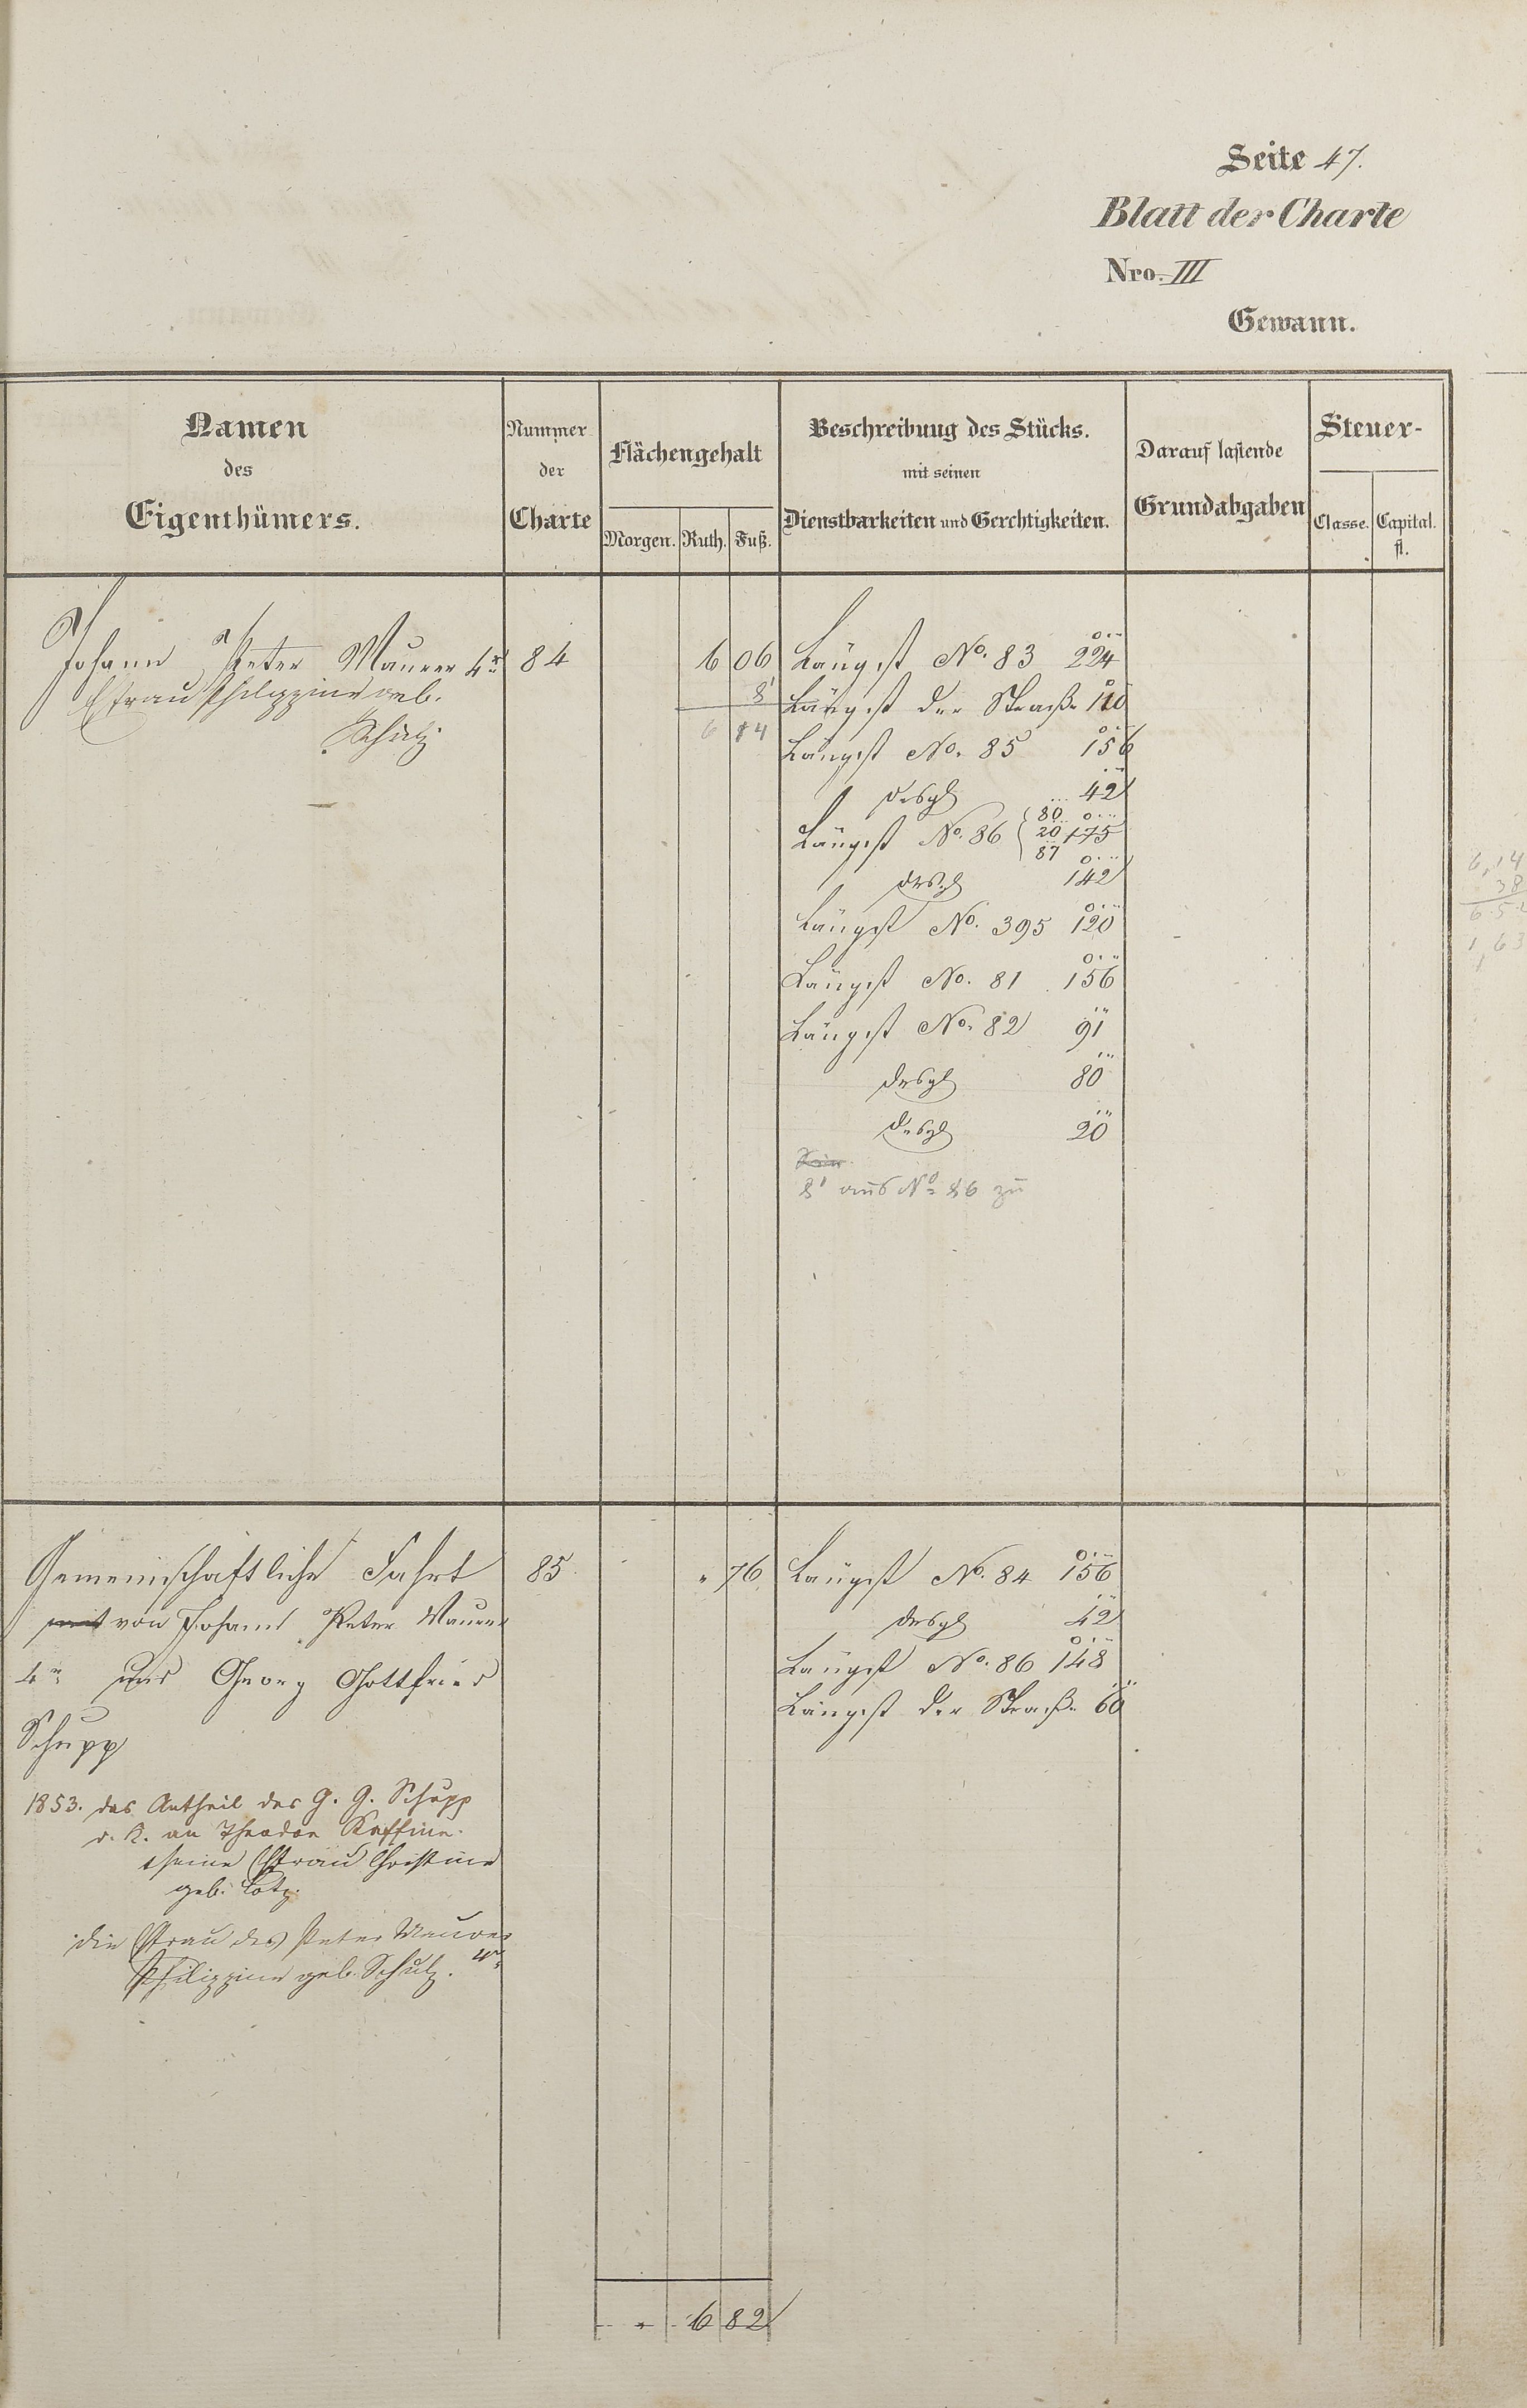 Seite 47.
Blatt der Charte
Nro. III
Gewann.
Namen des Eigenthümers.
Nummer der Charte
Flächengehalt
Morgen. Ruth. Fuß.
Beschreibung des Stücks. mit seinen Dienstbarkeiten und Gerechtigkeiten.
Darauf lastende Grundabgaben
Steuer-
Classe. Capital. fl.
Johann Peter Maurer 4r 84 6 06 Längst No. 83 224
Efrau Philippine geb. 8' Längst der Straße 110
Schulz 6 14 Längst No. 85 156
desgl 42
Längst No. 86 80 20 87 175
desgl 142
Längst No. 395 120
Längst No. 81 156
Längst No. 82 91
desgl 80
desgl 20
8' aus No 86 zu
6,14
38
1,63
Gemeinschaftliche Fahrt 85 " 76 Längst No. 84 156
mit von Johann Peter Maurer desgl 42
4r und Georg Gottfried Längst No. 86 148
Schupp Längst der Straße 60
1853. das Antheil des G. G. Schupp
d. K. an Theodor Kaffine
& seine Efrau Christine
geb. Lotz.
die Efrau des Peter Maurer
Philippine geb. Schulz. 4r
" 6 82